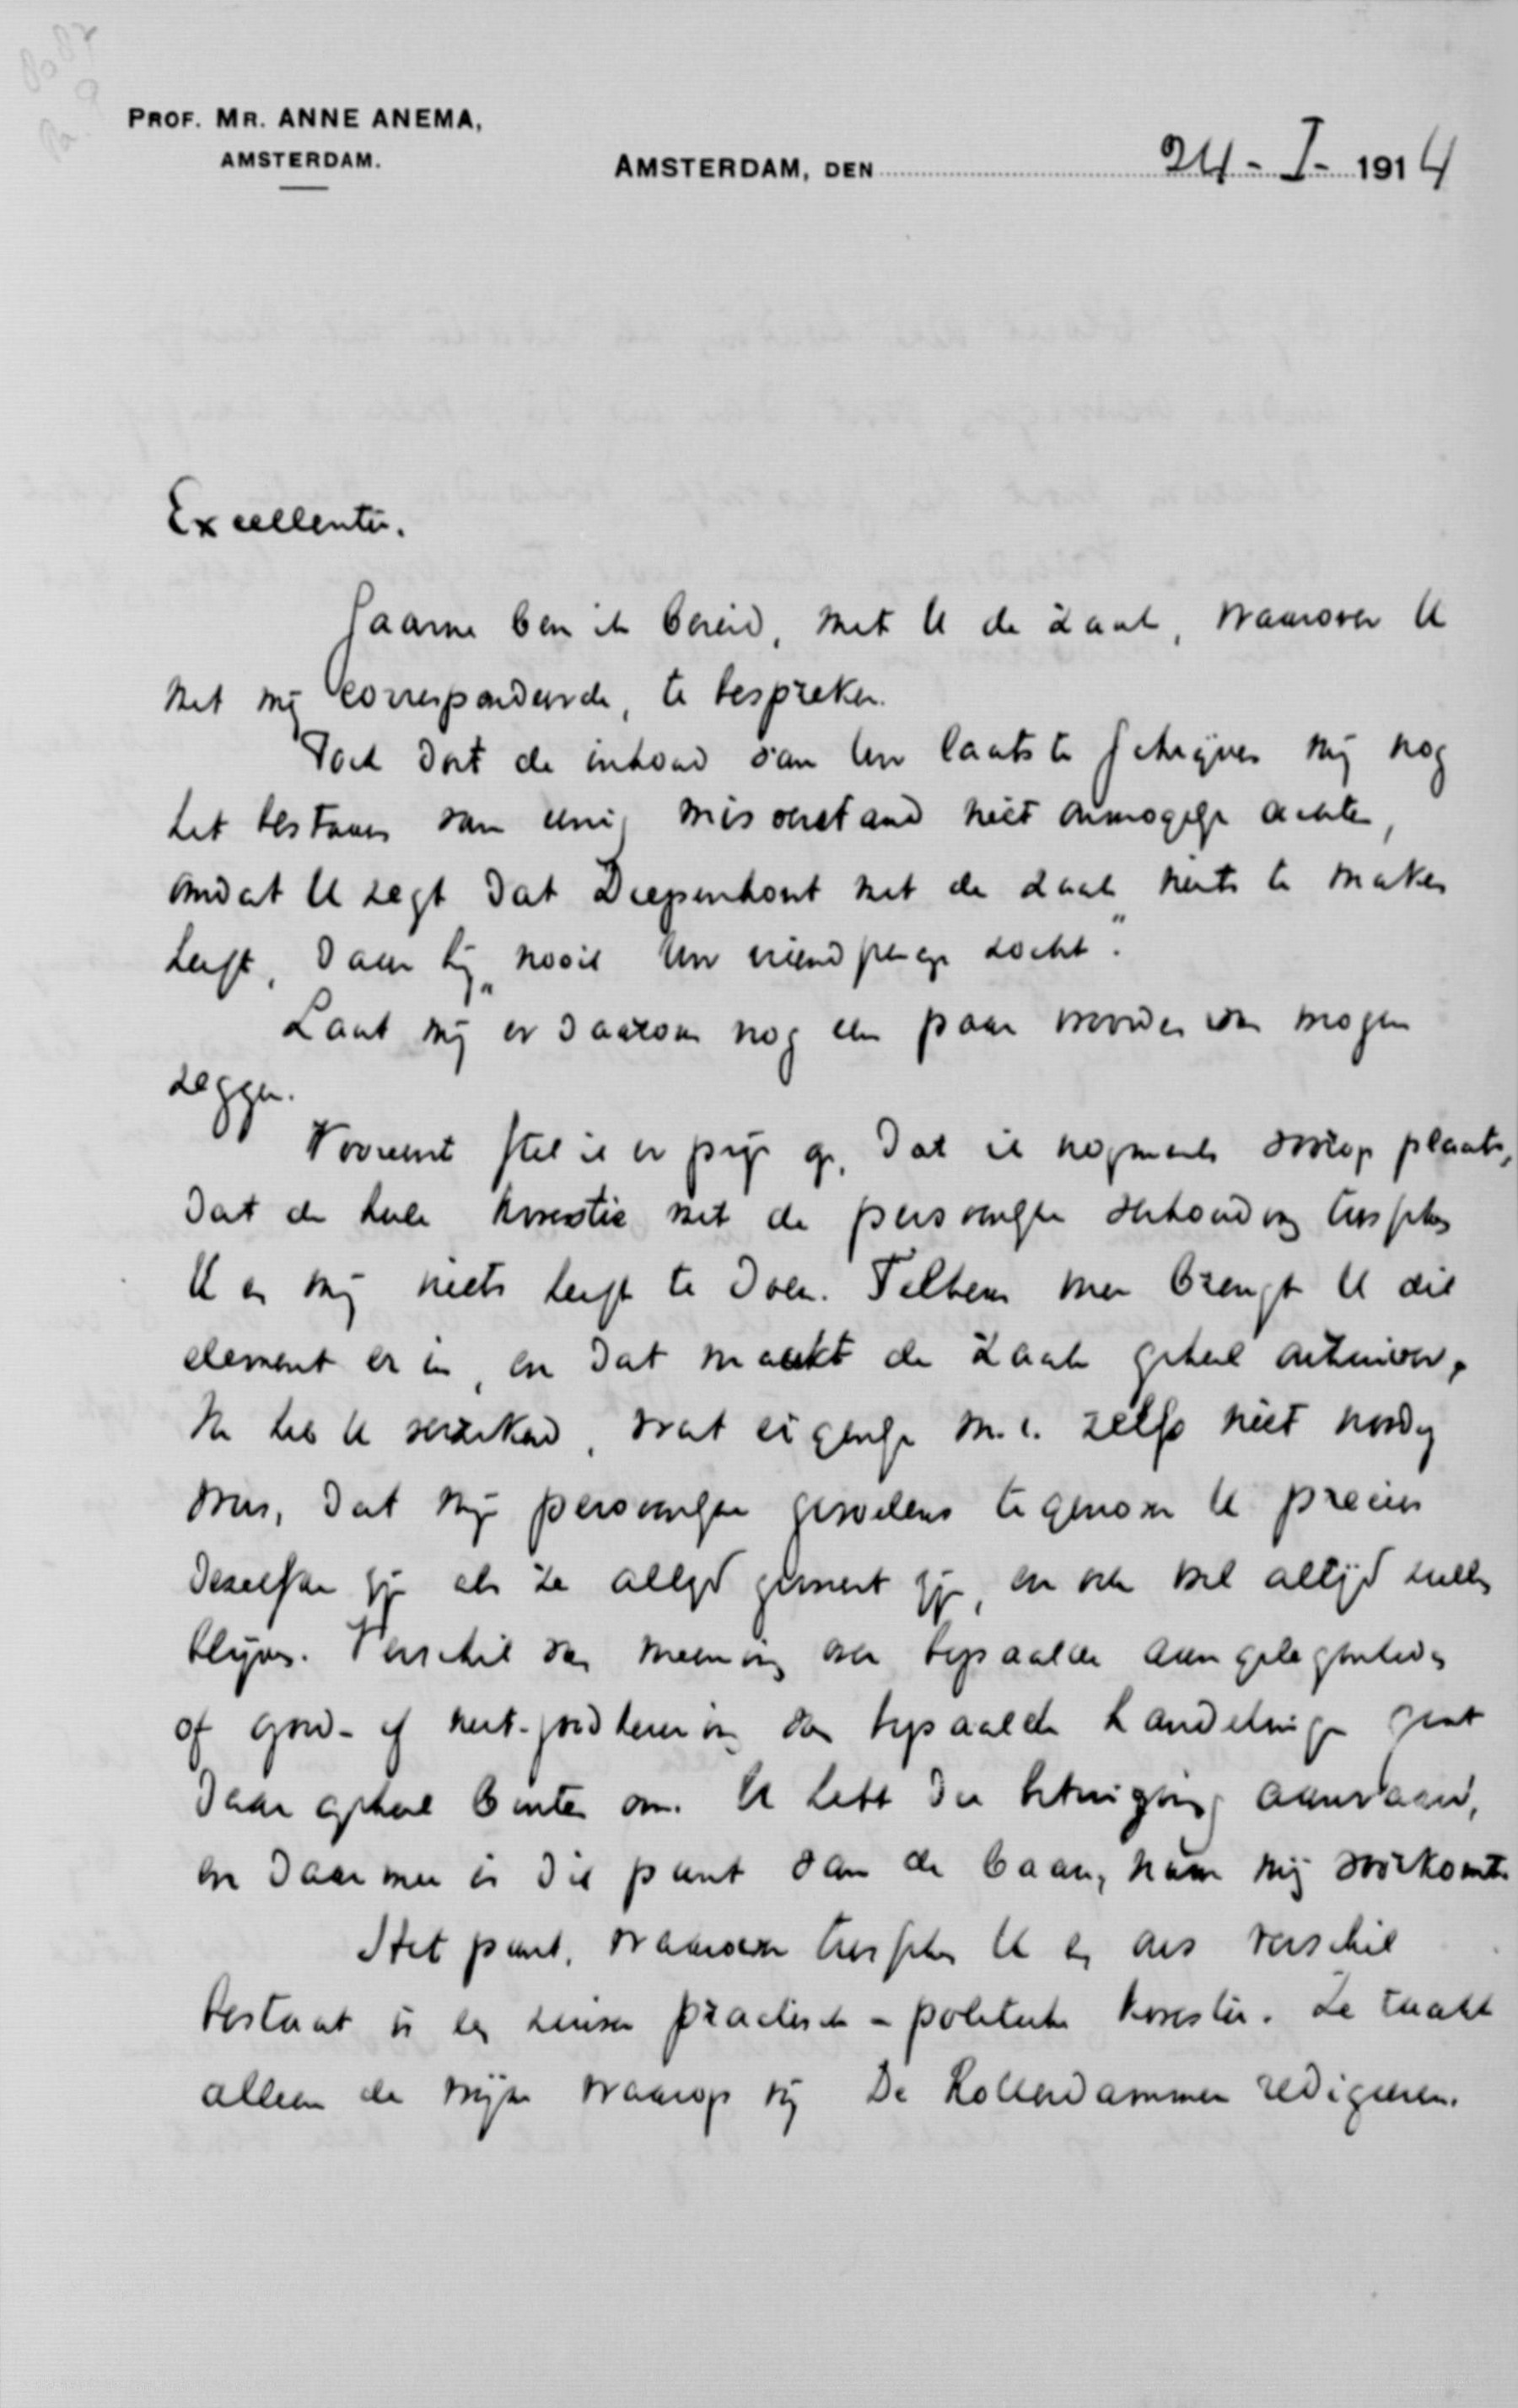 PROF. MR. ANNE ANEMA,
AMSTERDAM.
AMSTERDAM, DEN 24 - I - 1914
Excellentie.
Gaarne ben ik bereid, met U de zaak, waarover U
met mij correspondeerde, te bespreken.
Toch doet de inhoud van Uw laatste schrijven mij nog
het bestaan van eenig misverstand niet onmogelijk achten,
omdat U zegt dat Diepenhorst met de zaak niets te maken
heeft, daar hij „nooit Uw vriendschap zocht".
Laat mij er daarom nog een paar woorden van mogen
zeggen.
Vooreerst stel ik er prijs op, dat ik nogmaals voorop plaats,
dat de heele kwestie met de persoonlijke verhouding tusschen
U en mij niets heeft te doen. Telkens weer brengt U dit
element er in, en dat maakt de zaak geheel anders.
Ik heb U verzekerd, wat eigenlijk m.i. zelfs niet noodig
was, dat mijn persoonlijke gevoelens tegenover U precies
dezelfde zijn als ze altijd geweest zijn, en ook wel altijd zullen
blijven. Verschil van meening over bepaalde aangelegenheden
of goed- of niet-goedkeuring van bepaalde handelingen gaat
daar geheel buiten om. U hebt die betuiging aanvaard,
en daarmee is dit punt van de baan, naar mij voorkomt.
Het punt, waarover tusschen U en ons verschil
bestaat is een zuiver practisch-politieke kwestie. Ze raakt
alleen de wijze waarop wij De Rotterdammer redigeeren.